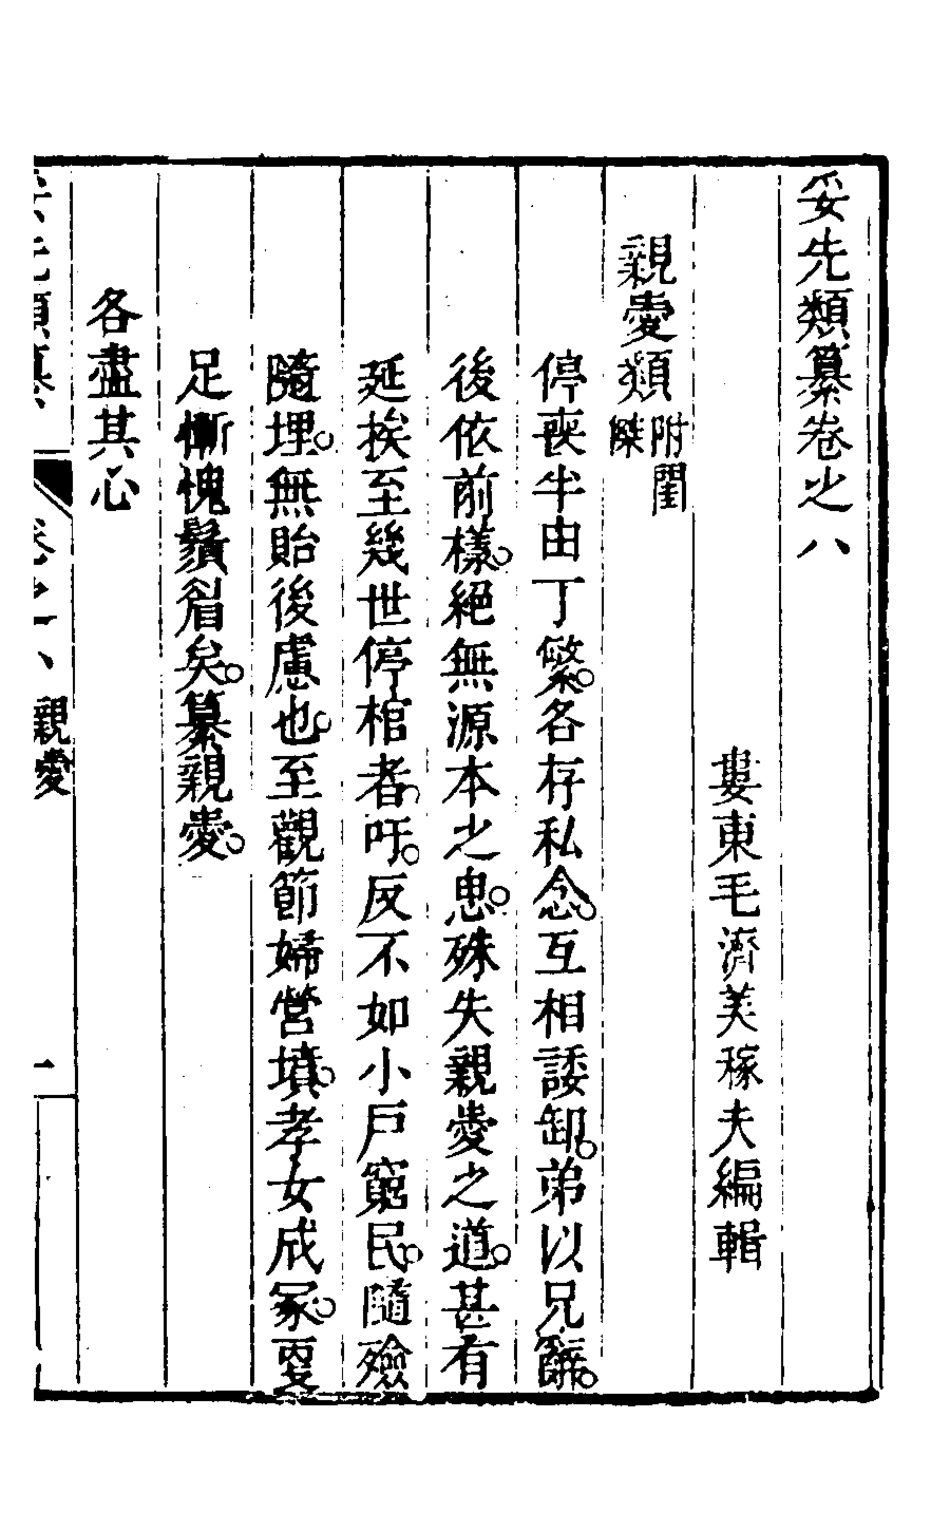 妥先類纂卷之八
婁東毛濟美稼夫編輯
親愛類附閨傑
停喪半由丁繁各存私念互相諉卸弟以兄辭
後依前樣絕無源本之思殊失親愛之道甚有
延挨至幾世停棺者吁反不如小戶窮民隨殮
隨埋無貽後慮也至觀節婦營墳孝女成冢更
足慚愧鬚眉矣纂親愛
各盡其心
妥先類纂 卷之八 親愛 一